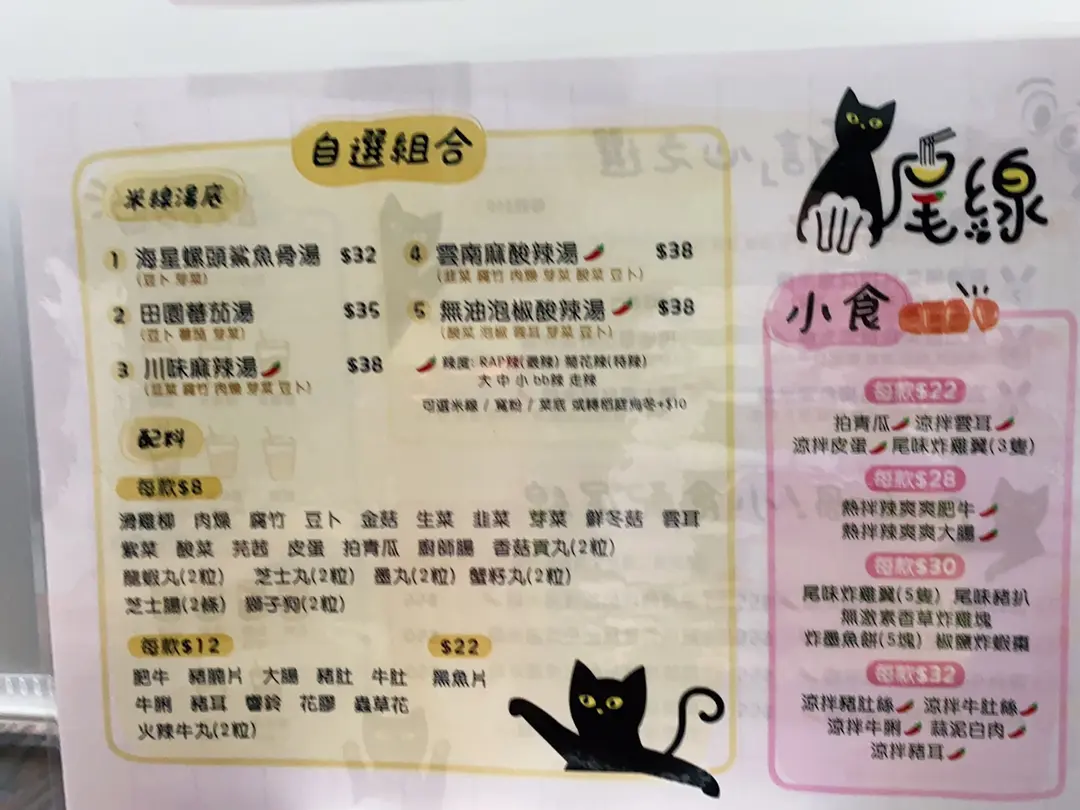 自選組合
米線湯底
1 海星螺頭鯊魚骨湯 $32
(豆卜 芽菜)
2 田園蕃茄湯 $35
(豆卜 蕃茄 芽菜)
3 川味麻辣湯 $38
(韮菜 腐竹 肉燥 芽菜 豆卜)
4 雲南麻酸辣湯 $38
(韮菜 腐竹 肉燥 芽菜 酸菜 豆卜)
5 無油泡椒酸辣湯 $38
(酸菜 泡椒 雲耳 芽菜 豆卜)
辣度: RAP辣(激辣) 菊花辣(特辣)
大 中 小 bb辣 走辣
可選米線 / 寬粉 / 菜底 或轉稻庭烏冬+$10
配料
每款$8
滑雞柳 肉燥 腐竹 豆卜 金菇 生菜 韮菜 芽菜 鮮冬菇 雲耳
紫菜 酸菜 芫茜 皮蛋 拍青瓜 廚師腸 香菇貢丸(2粒)
龍蝦丸(2粒) 芝士丸(2粒) 墨丸(2粒) 蟹籽丸(2粒)
芝士腸(2條) 獅子狗(2粒)
每款$12
肥牛 豬腩片 大腸 豬肚 牛肚
牛脷 豬耳 響鈴 花膠 蟲草花
火辣牛丸(2粒)
$22
黑魚片
尾線
小食
每款$22
拍青瓜 涼拌雲耳
涼拌皮蛋 尾味炸雞翼(3隻)
每款$28
熱拌辣爽爽肥牛
熱拌辣爽爽大腸
每款$30
尾味炸雞翼(5隻) 尾味豬扒
無激素香草炸雞塊
炸墨魚餅(5塊) 椒鹽炸蝦棗
每款$32
涼拌豬肚絲 涼拌牛肚絲
涼拌牛脷 蒜泥白肉
涼拌豬耳